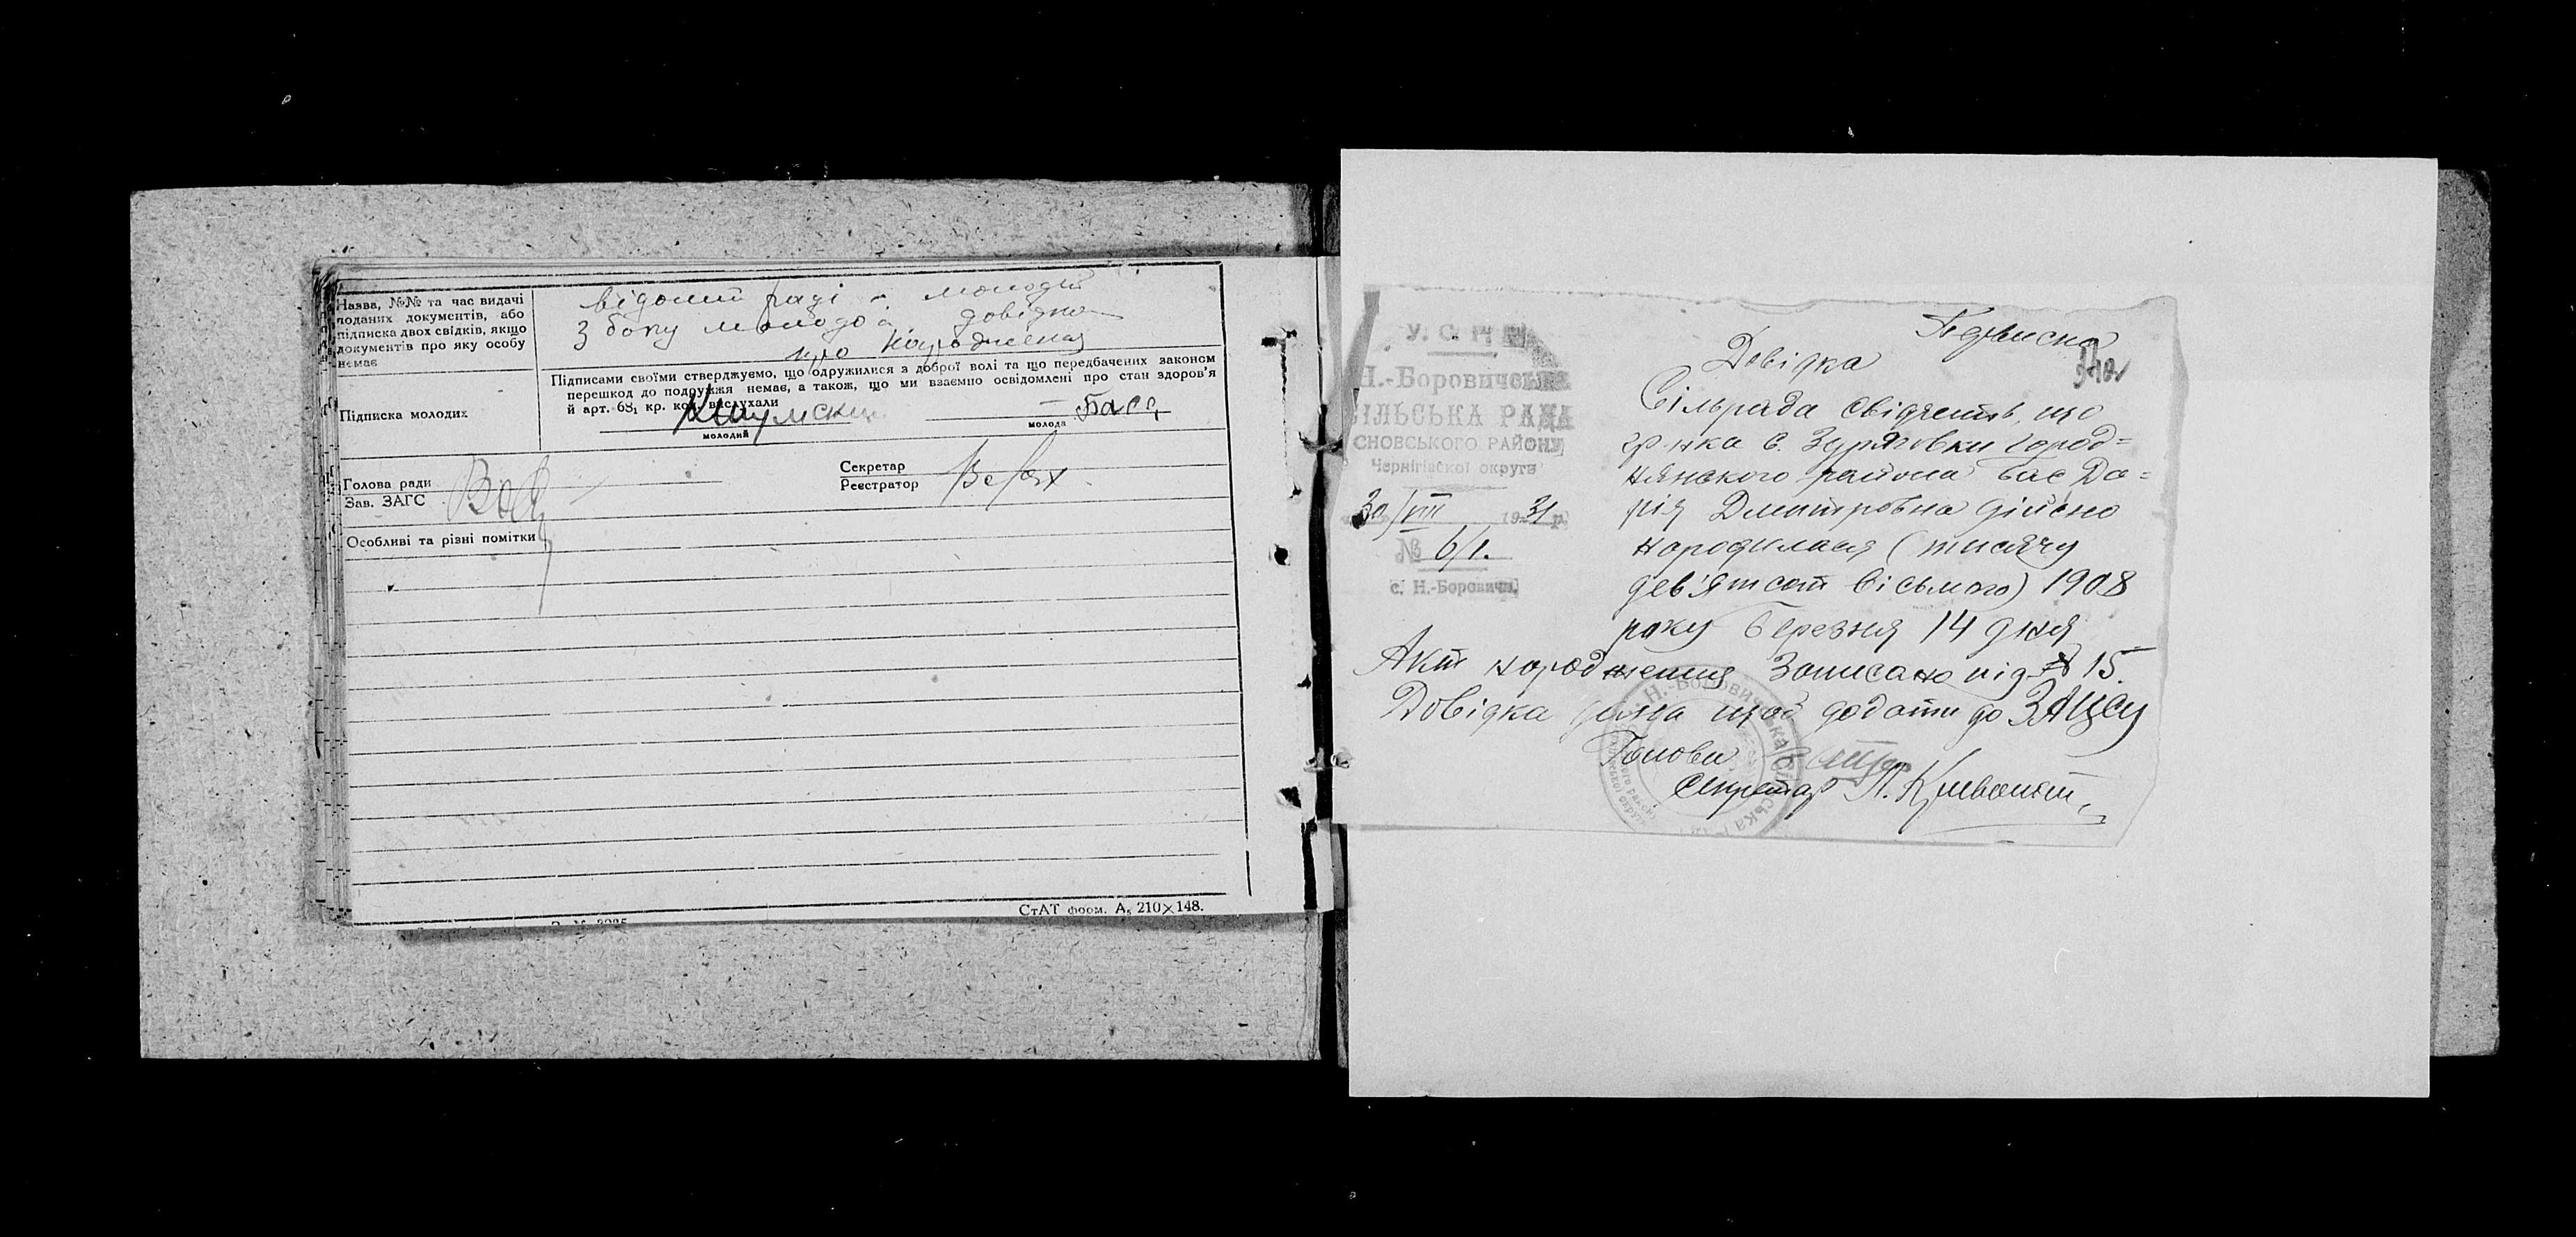 Назва, №№ та час видачі
поданих документів, або
підписка двох свідків, якщо
документів про яку особу
немає
відомий раді - молодий
з боку молодої довідка
про народження
Підписами своїми стверджуємо, що одружилися з доброї волі та що передбачених законом
перешкод до подружжя немає, а також, що ми взаємно освідомлені про стан здоров'я
й арт. 68₁ кр. код. вислухали
Підписка молодих
молодий
молода Басс
Голова ради
Зав. ЗАГС
Секретар
Реєстратор
Особливі та різні помітки
СтАТ форм. А₅ 210×148.
У. С.
Н.-Боровичська
СІЛЬСЬКА РАДА
СНОВСЬКОГО РАЙОНУ
Чернігівської округи
30/VIII 1931 р.
№ 6/1.
с. Н.-Боровичі
Довідка
Сільрада свідчить, що
гр-нка с. Зуряговки Город=
нянського района Бас Да=
рія Дмитровна дійсно
народилася (тисячу
дев'ятсот вісьмого) 1908
року Березня 14 дня
Акт народження Записано під № 15.
Довідка дана щоб додати до ЗАЦСу
Голова
Секретар